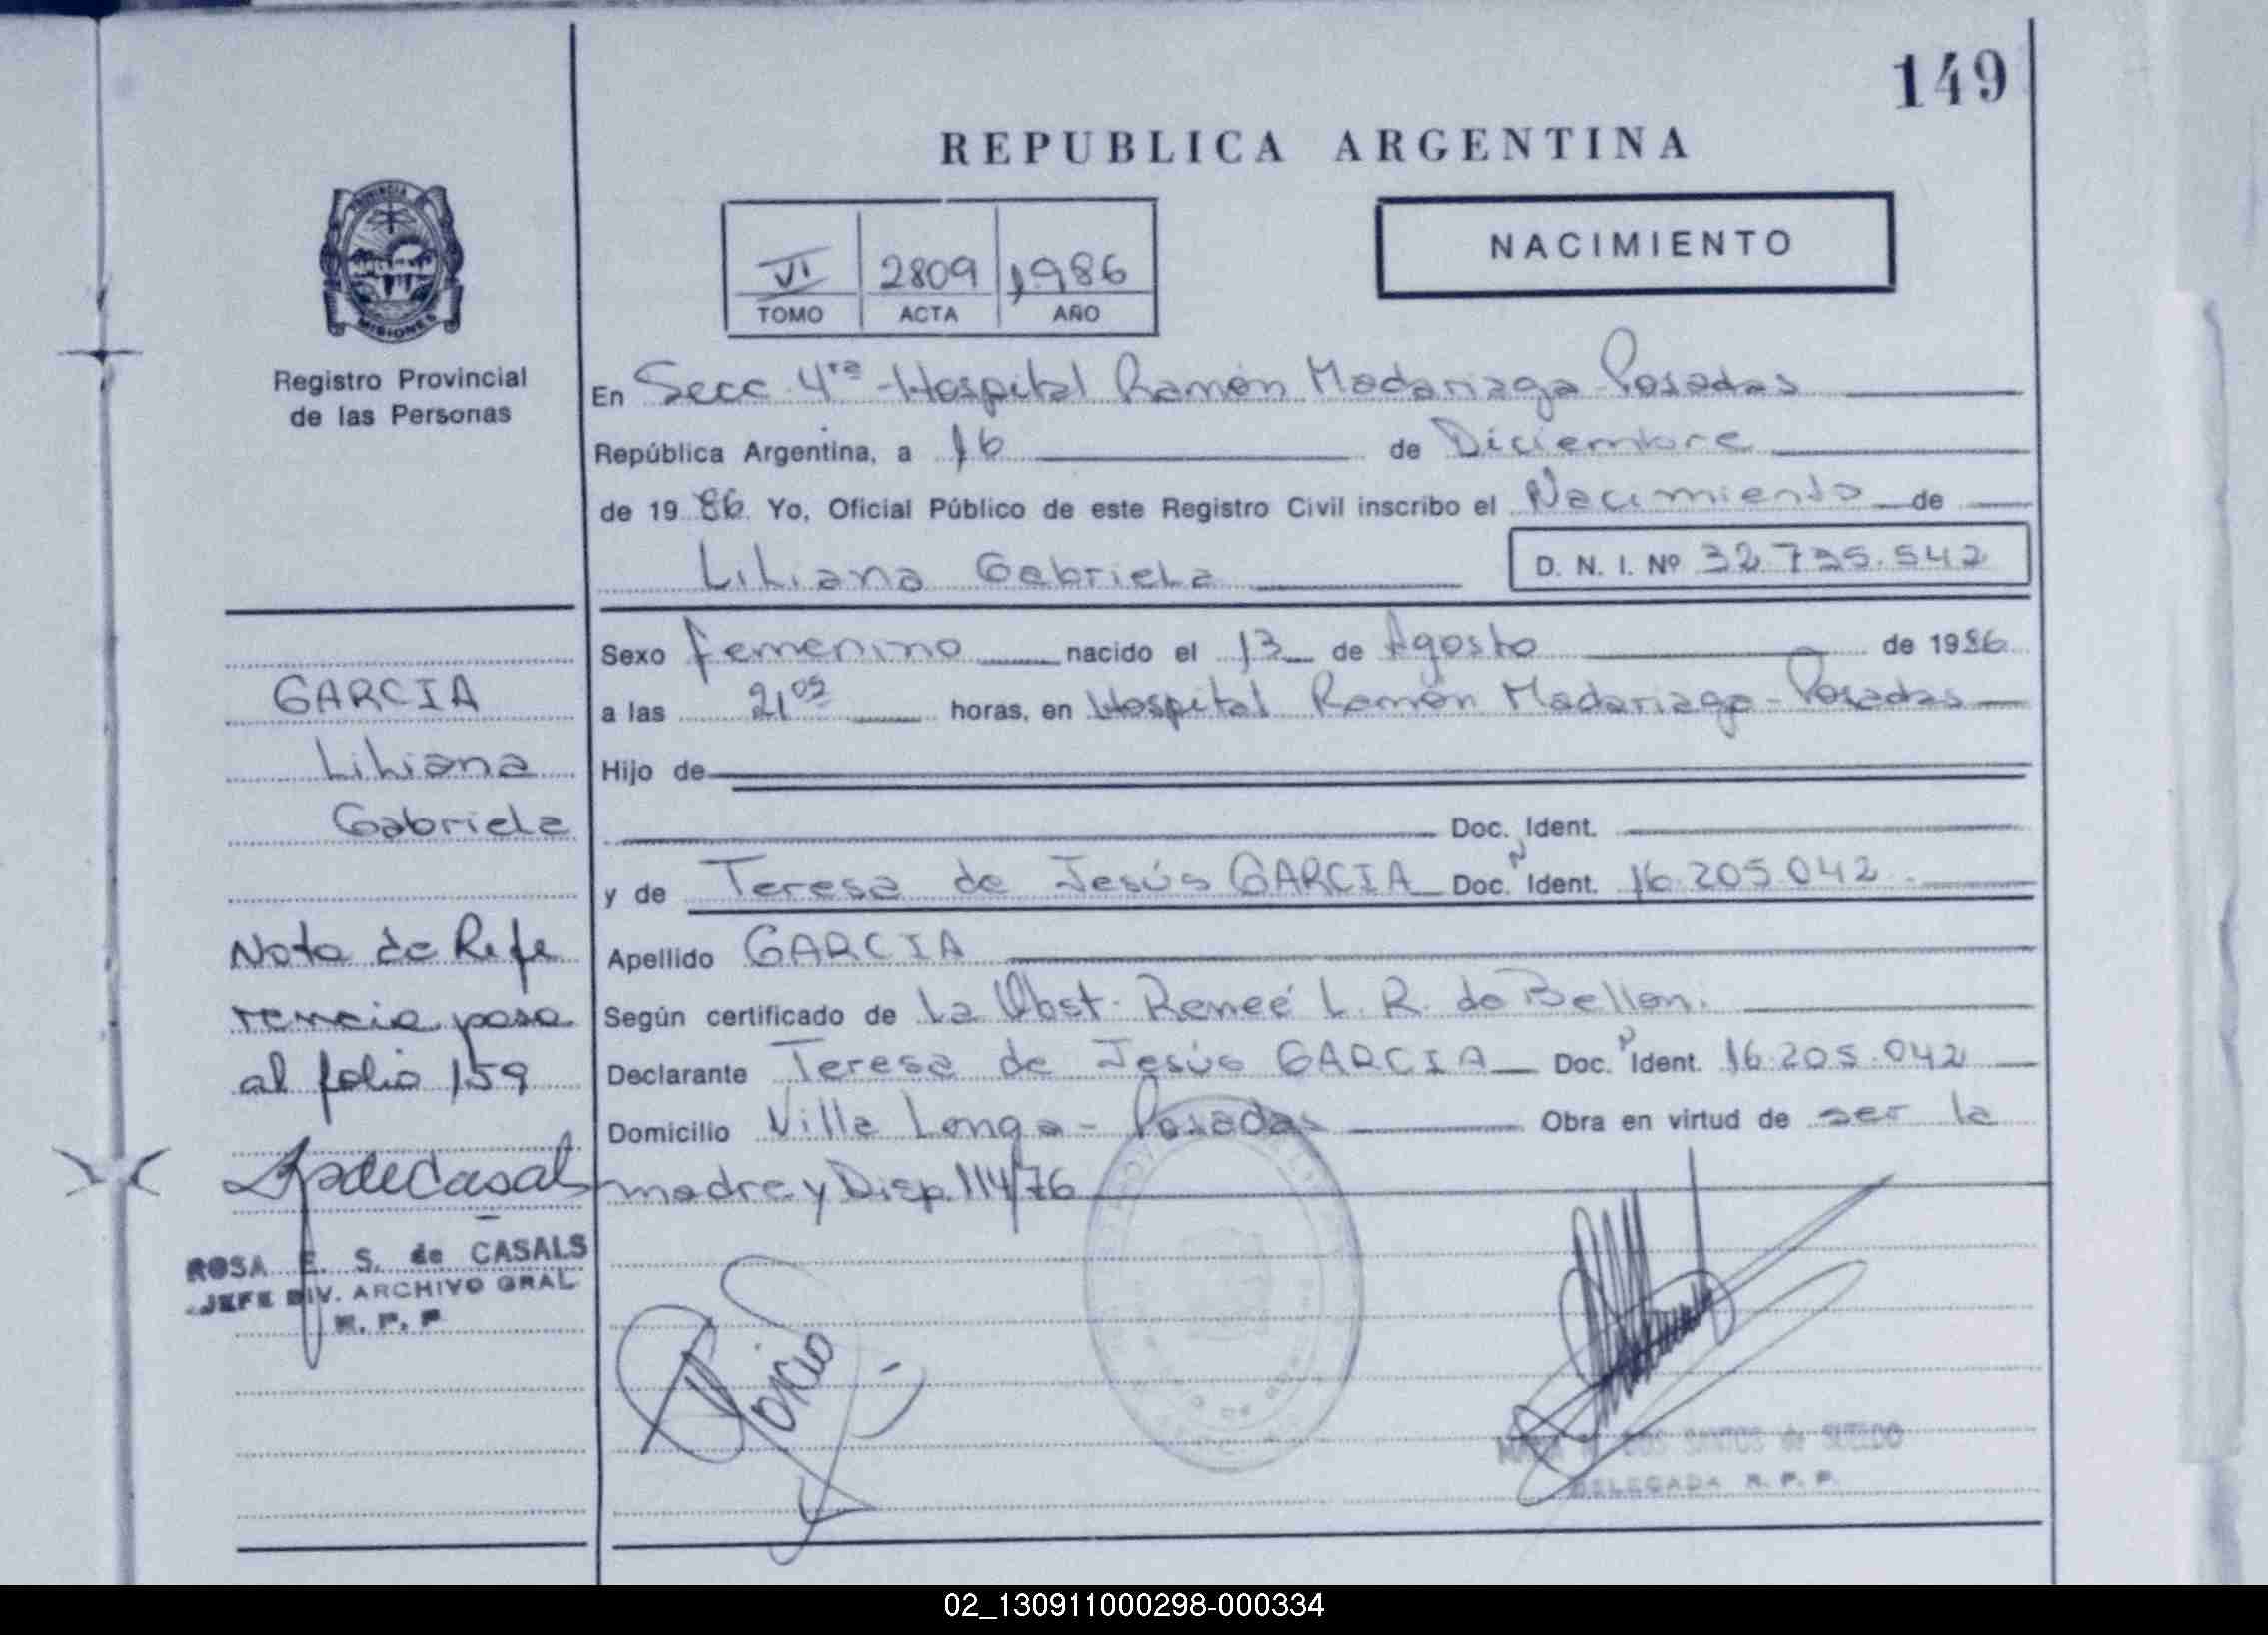 149
REPUBLICA ARGENTINA
PROVINCIA DE
MISIONES
Registro Provincial
de las Personas
VI 2809 1986
TOMO ACTA AÑO
NACIMIENTO
En Secc 4ra - Hospital Ramón Madariaga - Posadas
República Argentina, a 16 de Diciembre
de 1986 Yo, Oficial Público de este Registro Civil inscribo el Nacimiento de
Liliana Gabriela D. N. I. Nº 32.735.542
Sexo femenino nacido el 13 de Agosto de 1986
a las 21 05 horas, en Hospital Ramón Madariaga - Posadas
Hijo de
Doc. Ident.
y de Teresa de Jesús GARCIA Doc. N Ident. 16.205.042
Apellido GARCIA
Según certificado de La Obst. Reneé L. R. de Belloni
Declarante Teresa de Jesús GARCIA Doc. N Ident. 16.205.042
Domicilio Villa Longa - Posadas Obra en virtud de ser la
madre y Disp. 114/76
GARCIA
Liliana
Gabriela
Nota de Refe
rencia pasa
al folio 159
ROSA E. S. de CASALS
JEFE DIV. ARCHIVO GRAL
R. P. P.
DOS SANTOS de
DELEGADA R. P. P.
02_130911000298-000334